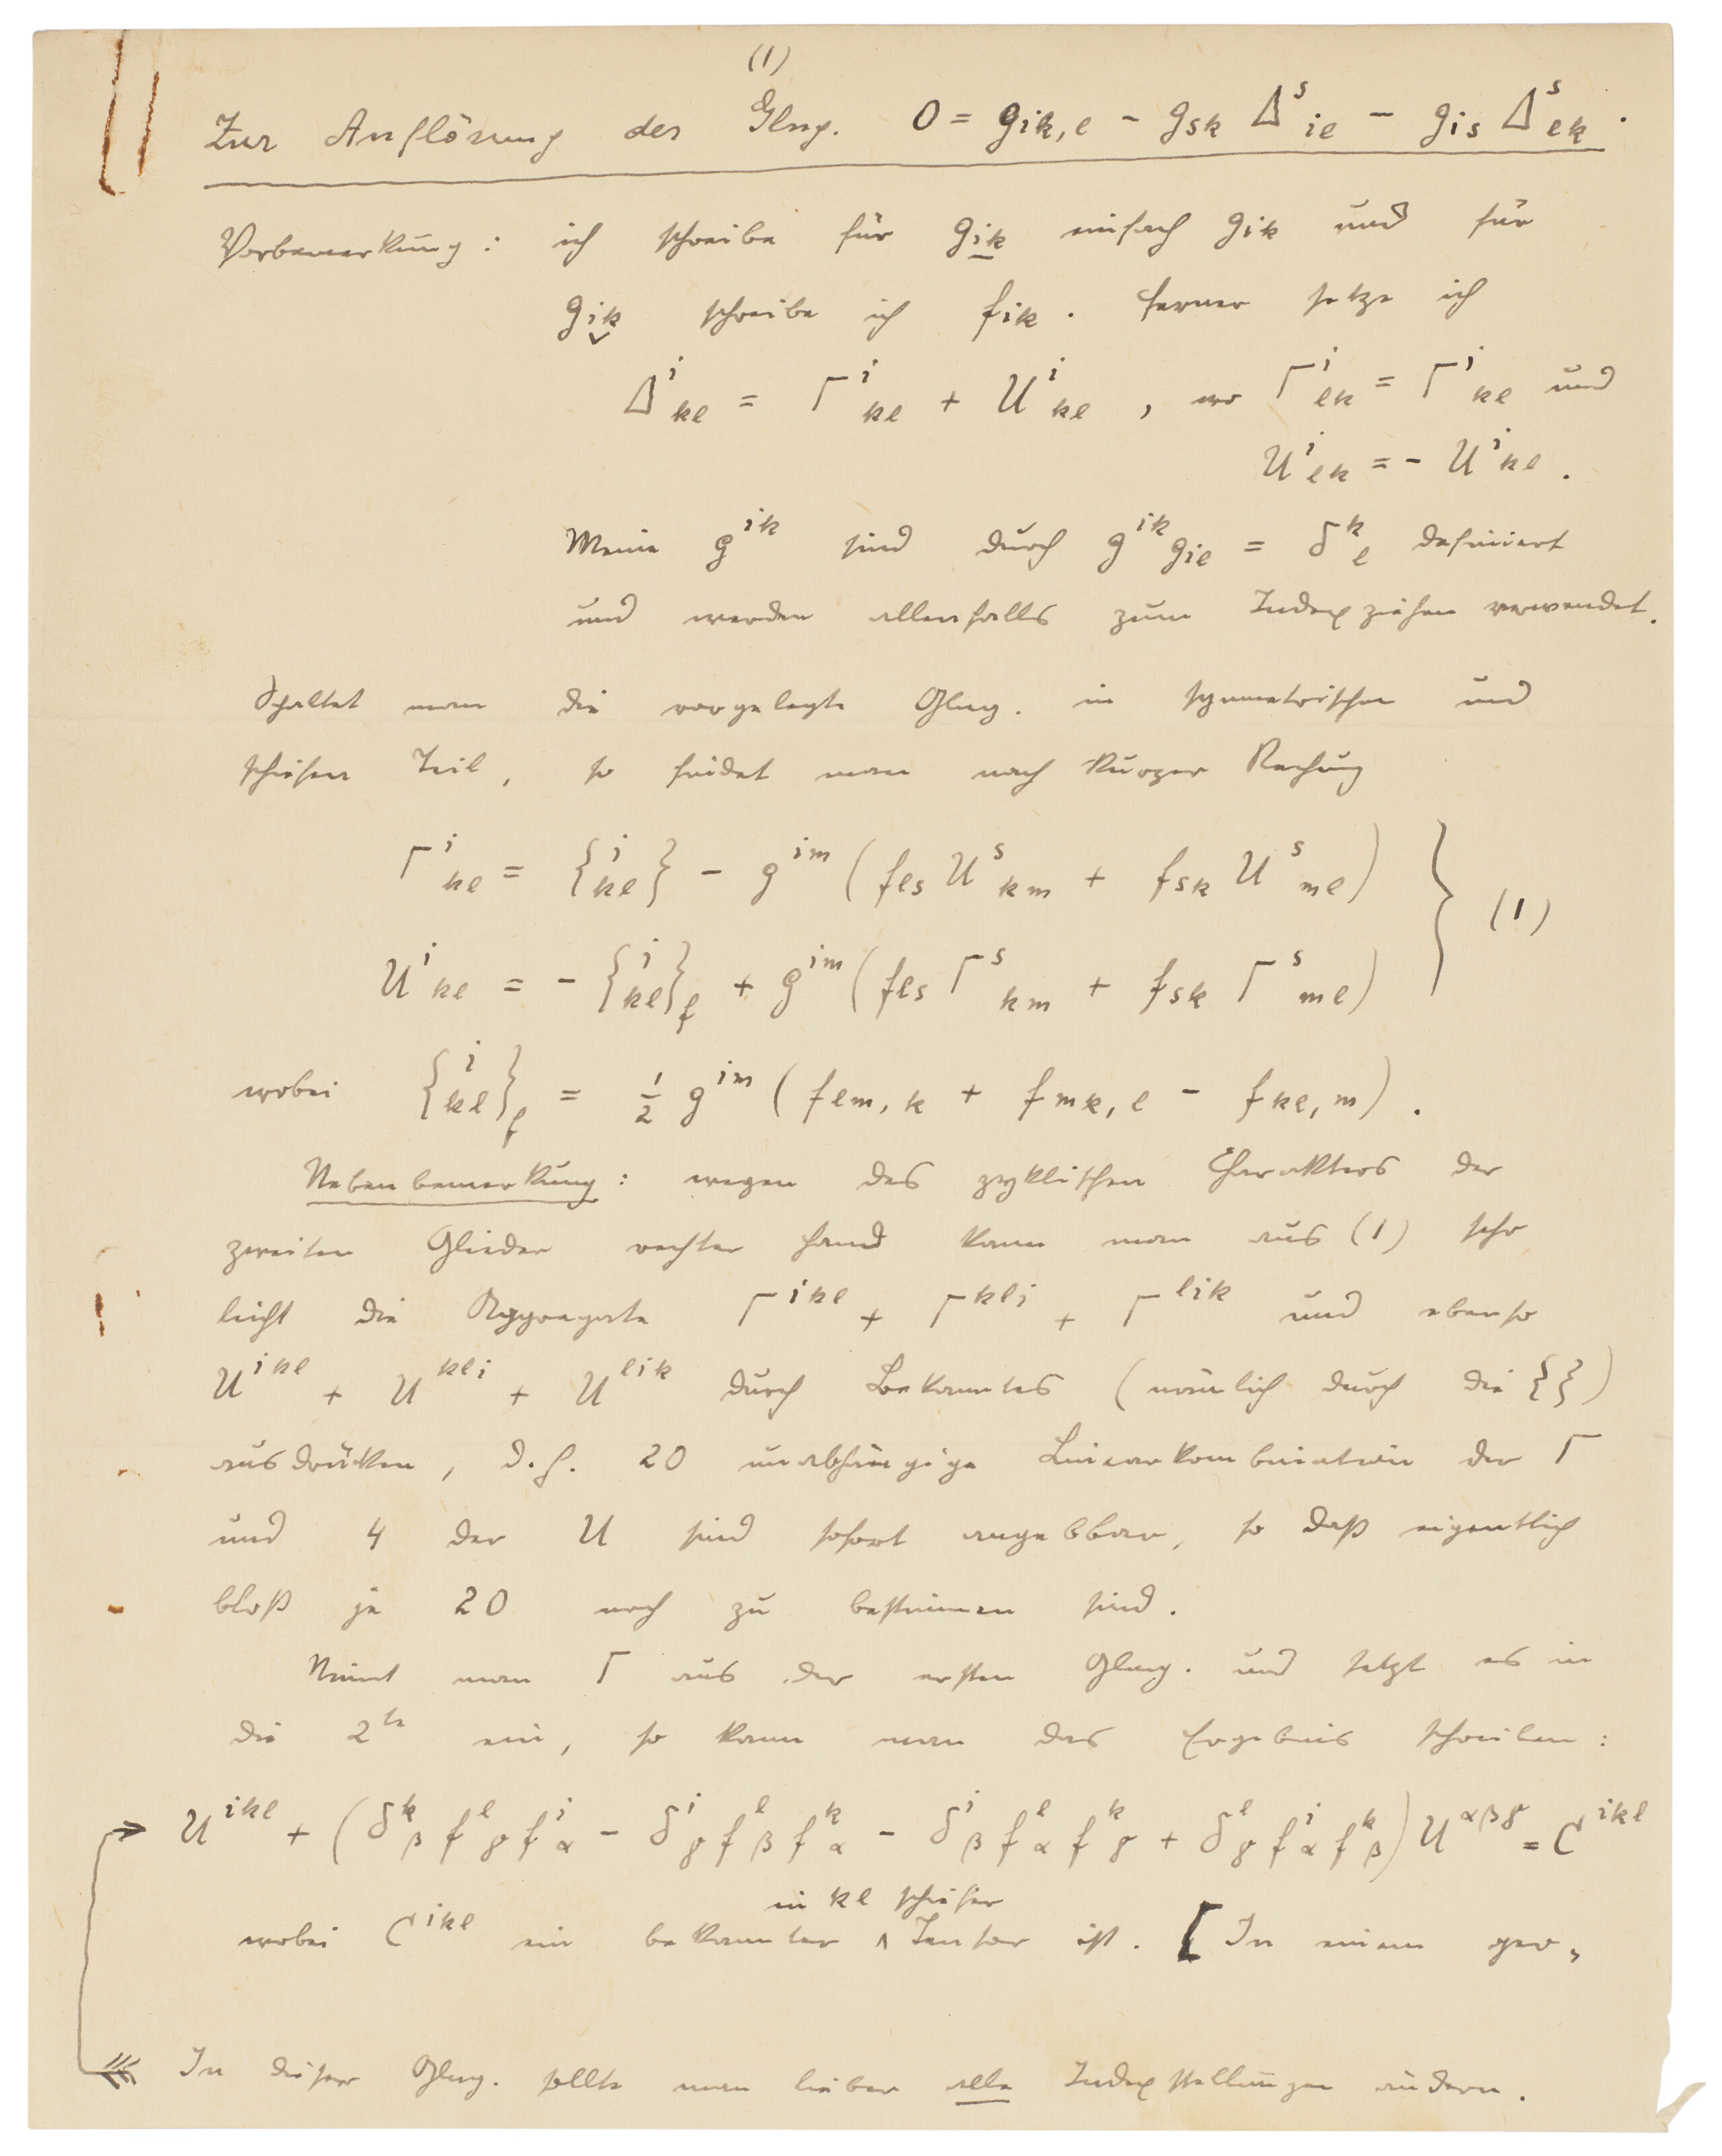 (1)
Zur Auflösung der Glng. 0 = g_{ik,l} - g_{sk} Δ^s_{il} - g_{is} Δ^s_{lk}.
Vorbemerkung: ich schreibe für g_{i̲k̲} einfach g_{ik} und für
g_{ik}̬ schreibe ich f_{ik}. Ferner setze ich
Δ^i_{kl} = Γ^i_{kl} + U^i_{kl}, wo Γ^i_{lk} = Γ^i_{kl} und
U^i_{lk} = - U^i_{kl}.
Meine g^{ik} sind durch g^{ik} g_{il} = δ^k_l definiert
und werden allenfalls zum Indexziehen verwendet.
Spaltet man die vorgelegte Glng. in symmetrischen und
schiefen Teil, so findet man nach kurzer Rechung
Γ^i_{kl} = {^i_{kl}} - g^{im} (f_{ls} U^s_{km} + f_{sk} U^s_{ml})
U^i_{kl} = - {^i_{kl}}_f + g^{im} (f_{ls} Γ^s_{km} + f_{sk} Γ^s_{ml}) } (1)
wobei {^i_{kl}}_f = 1/2 g^{im} (f_{lm,k} + f_{mk,l} - f_{kl,m}).
Nebenbemerkung: wegen des zyklischen Charakters der
zweiten Glieder rechter Hand kann man aus (1) sehr
leicht die Aggregate Γ^{ikl} + Γ^{kli} + Γ^{lik} und ebenso
U^{ikl} + U^{kli} + U^{lik} durch Bekanntes (nämlich durch die {})
ausdrücken, d.h. 20 unabhängige Linearkombination der Γ
und 4 der U sind sofort angebbar, so daß eigentlich
bloß je 20 noch zu bestimmen sind.
Nimmt man Γ aus der ersten Glng. und setzt es in
die 2^{te} ein, so kann man das Ergebnis schreiben:
U^{ikl} + (δ^k_β f^l_γ f^i_α - δ^i_γ f^l_β f^k_α - δ^i_β f^l_α f^k_γ + δ^l_γ f^i_α f^k_β) U^{αβγ} = C^{ikl}
in kl schiefer
wobei C^{ikl} ein bekannter ∧ Tensor ist. [In einem geo-
In dieser Glng. sollte man lieber alle Indexstellungen ändern.